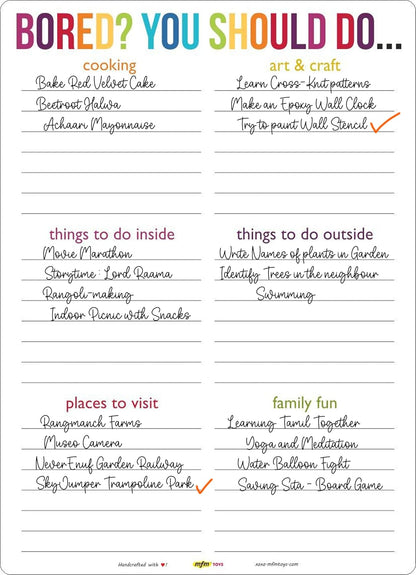 BORED? YOU SHOULD DO...
cooking
Bake Red Velvet Cake
Beetroot Halwa
Achaari Mayonnaise
art & craft
Learn Cross-Knit patterns
Make an Epoxy Wall Clock
Try to paint Wall Stencil
things to do inside
Movie Marathon
Storytime : Lord Raama
Rangoli-making
Indoor Picnic with Snacks
things to do outside
Write Names of plants in Garden
Identify Trees in the neighbour
Swimming
places to visit
Rangmanch Farms
Museo Camera
NeverEnuf Garden Railway
SkyJumper Trampoline Park
family fun
Learning Tamil Together
Yoga and Meditation
Water Balloon Fight
Saving Sita - Board Game
Handcrafted with ❤!
mfm TOYS
xoxo-mfmtoys.com